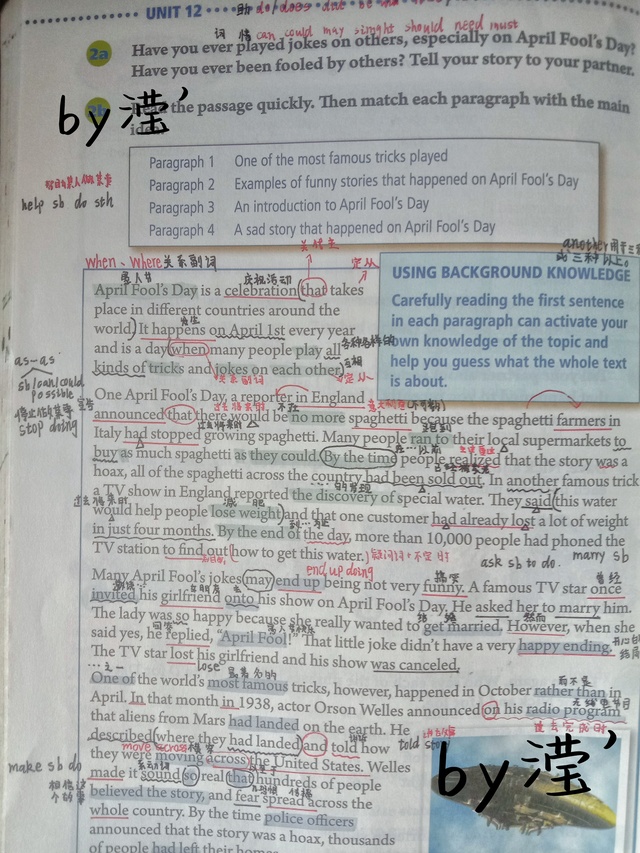 UNIT 12
助 do/does due be
词 情 can could may might should need must
2a Have you ever played jokes on others, especially on April Fool's Day?
Have you ever been fooled by others? Tell your story to your partner.
by 滢'
the passage quickly. Then match each paragraph with the main
Paragraph 1 One of the most famous tricks played
Paragraph 2 Examples of funny stories that happened on April Fool's Day
Paragraph 3 An introduction to April Fool's Day
Paragraph 4 A sad story that happened on April Fool's Day
help sb do sth
another
USING BACKGROUND KNOWLEDGE
Carefully reading the first sentence
in each paragraph can activate your
own knowledge of the topic and
help you guess what the whole text
is about.
when、where关系副词
定从
愚人节
庆祝活动
April Fool's Day is a celebration that takes
place in different countries around the
world. It happens on April 1st every year
发生
and is a day when many people play all
各种各样的
kinds of tricks and jokes on each other.
互相
关系副词
定从
as-as
sb/can/could
possible
停止做某事
stop doing
One April Fool's Day, a reporter in England
宣告
announced that there would be no more spaghetti because the spaghetti farmers in
过去将来时
Italy had stopped growing spaghetti. Many people ran to their local supermarkets to
buy as much spaghetti as they could. By the time people realized that the story was a
在…以前
hoax, all of the spaghetti across the country had been sold out. In another famous trick
a TV show in England reported the discovery of special water. They said this water
…的发现
过去将来时
would help people lose weight and that one customer had already lost a lot of weight
减肥
in just four months. By the end of the day, more than 10,000 people had phoned the
到…为止
TV station to find out how to get this water.
疑问词+不定时
ask sb to do.
marry sb
end up doing
Many April Fool's jokes may end up being not very funny. A famous TV star once
搞笑
曾经
invited his girlfriend onto his show on April Fool's Day. He asked her to marry him.
女朋友
The lady was so happy because she really wanted to get married. However, when she
结婚
然而
said yes, he replied, "April Fool!" That little joke didn't have a very happy ending.
The TV star lost his girlfriend and his show was canceled.
lose
…之一
One of the world's most famous tricks, however, happened in October rather than in
最著名的
而不是
April. In that month in 1938, actor Orson Welles announced on his radio program
无线电节目
that aliens from Mars had landed on the earth. He
过去完成时
described where they had landed and told how
told
move across
they were moving across the United States. Welles
make sb do
made it sound so real that hundreds of people
believed the story, and fear spread across the
传播
whole country. By the time police officers
announced that the story was a hoax, thousands
of people had left their homes
by 滢'